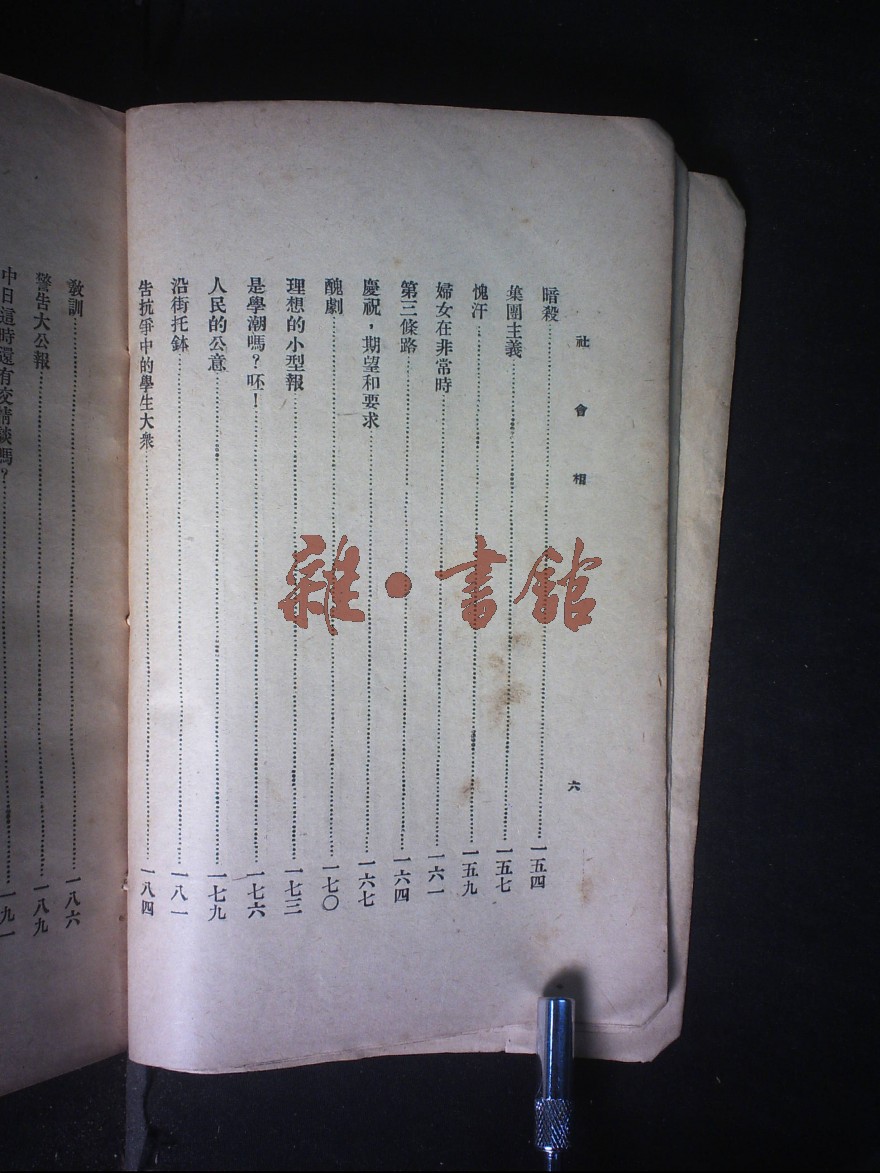 社會相
六
暗殺……一五四
集團主義……一五七
愧汗……一五九
婦女在非常時……一六一
第三條路……一六四
慶祝，期望和要求……一六七
醜劇……一七〇
理想的小型報……一七三
是學潮嗎？呸！……一七六
人民的公意……一七九
沿街托鉢……一八一
告抗爭中的學生大衆……一八四
教訓……一八六
警告大公報……一八九
中日這時還有交情談嗎？……一九一
雜·書館